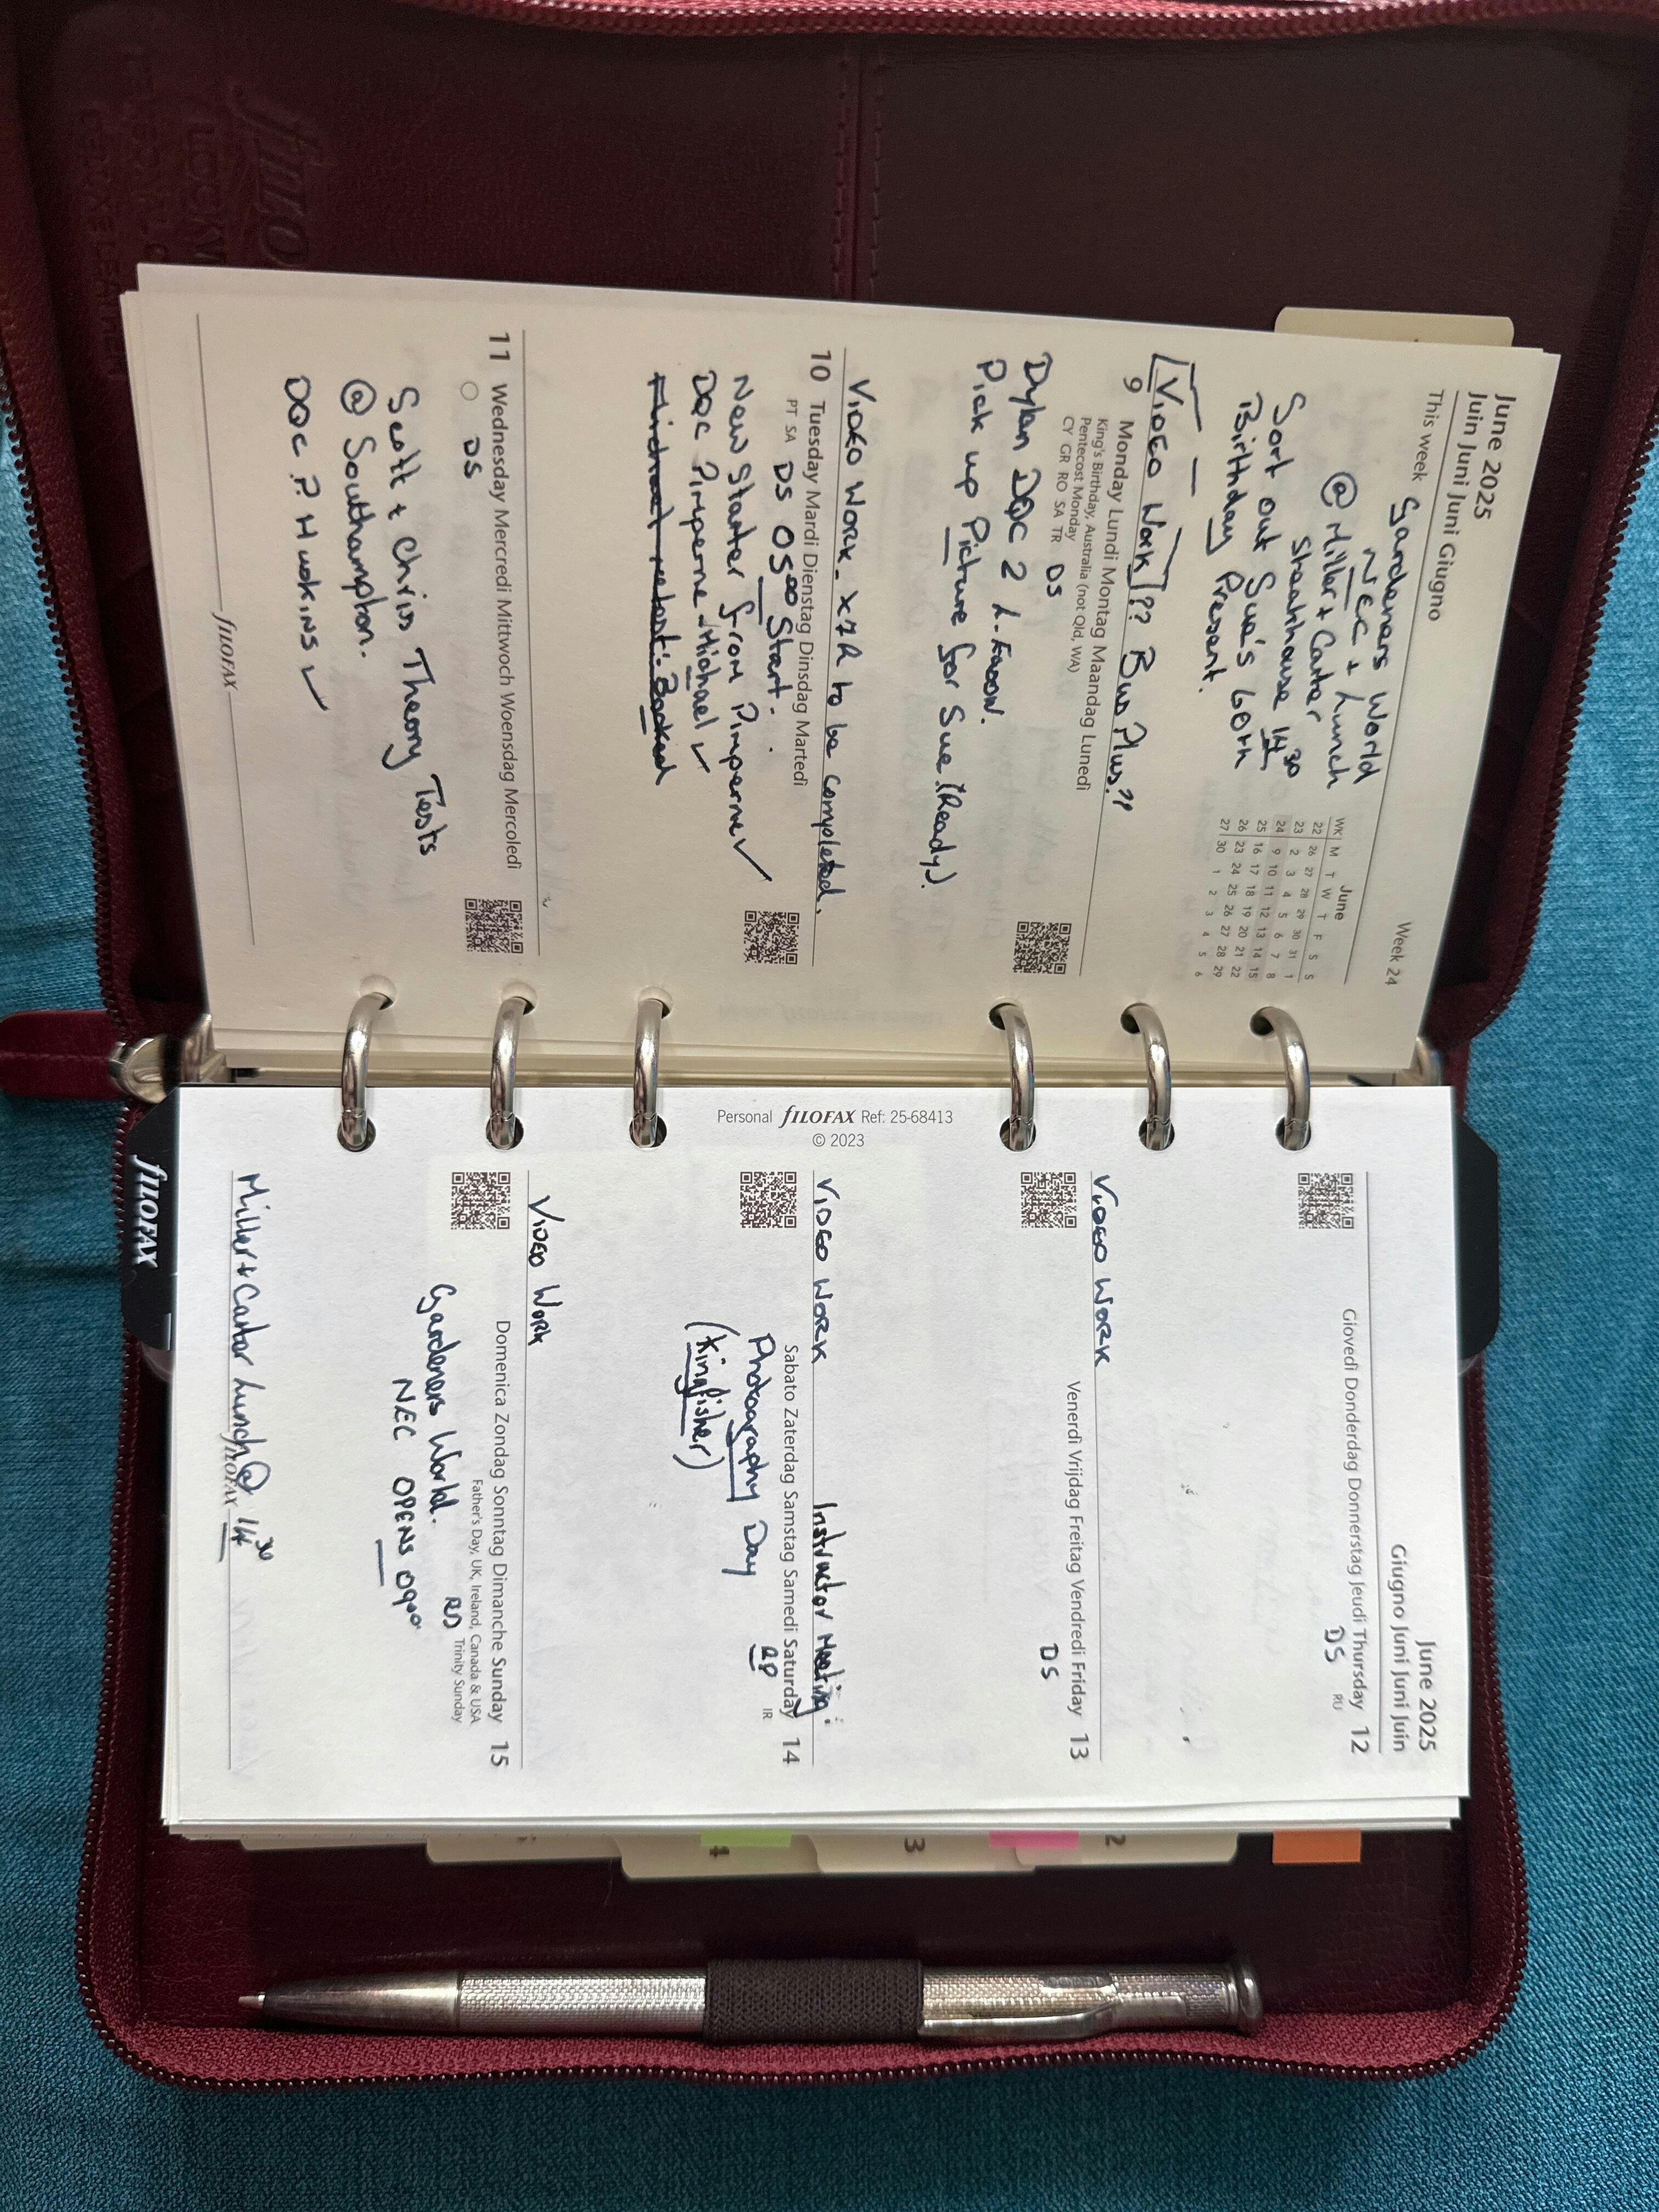 June 2025
Juin Juni Juni Juni Giugno
Week 24
This week
Gardeners World
NEC + Lunch
@ Miller + Carter
Steakhouse 14³⁰
Sort out Sue's 60th
Birthday Present.
WK M T W T F S S
June
22 26 27 28 29 30 31 1
23 2 3 4 5 6 7 8
24 9 10 11 12 13 14 15
25 16 17 18 19 20 21 22
26 23 24 25 26 27 28 29
27 30 1 2 3 4 5 6
[Video Work]?? Bus Plus??
9 Monday Lundi Montag Maandag Lunedì
King's Birthday, Australia (not Qld, WA)
Pentecost Monday
CY GR RO SA TR DS
Dylan DQC 2
Pick up Picture for Sue (Ready).
Video Work - x7R to be completed.
10 Tuesday Mardi Dienstag Dinsdag Martedì
PT SA DS 05⁰⁰ Start.
New Starter from Pimperne ✓
DQC Pimperne - Michael ✓
11 Wednesday Mercredi Mittwoch Woensdag Mercoledì
DS
Scott + Chris Theory Tests
@ Southampton.
DQC P. ✓
fILOFAX
Personal fILOFAX Ref: 25-68413
© 2023
June 2025
Giugno Juni Juni Juni Juin
Giovedì Donderdag Donnerstag Jeudi Thursday 12
DS RU
Video Work
Venerdì Vrijdag Freitag Vendredi Friday 13
DS
Video Work Instructor Meeting.
Sabato Zaterdag Samstag Samedi Saturday 14
RP IR
Photography Day
(Kingfisher)
Video Work
Domenica Zondag Sonntag Dimanche Sunday 15
Father's Day, UK, Ireland, Canada & USA
Trinity Sunday
Gardeners World.
NEC OPENS 09⁰⁰
Miller + Carter Lunch @ 14³⁰
fILOFAX
fILOFAX
2
3
4
fILOFAX